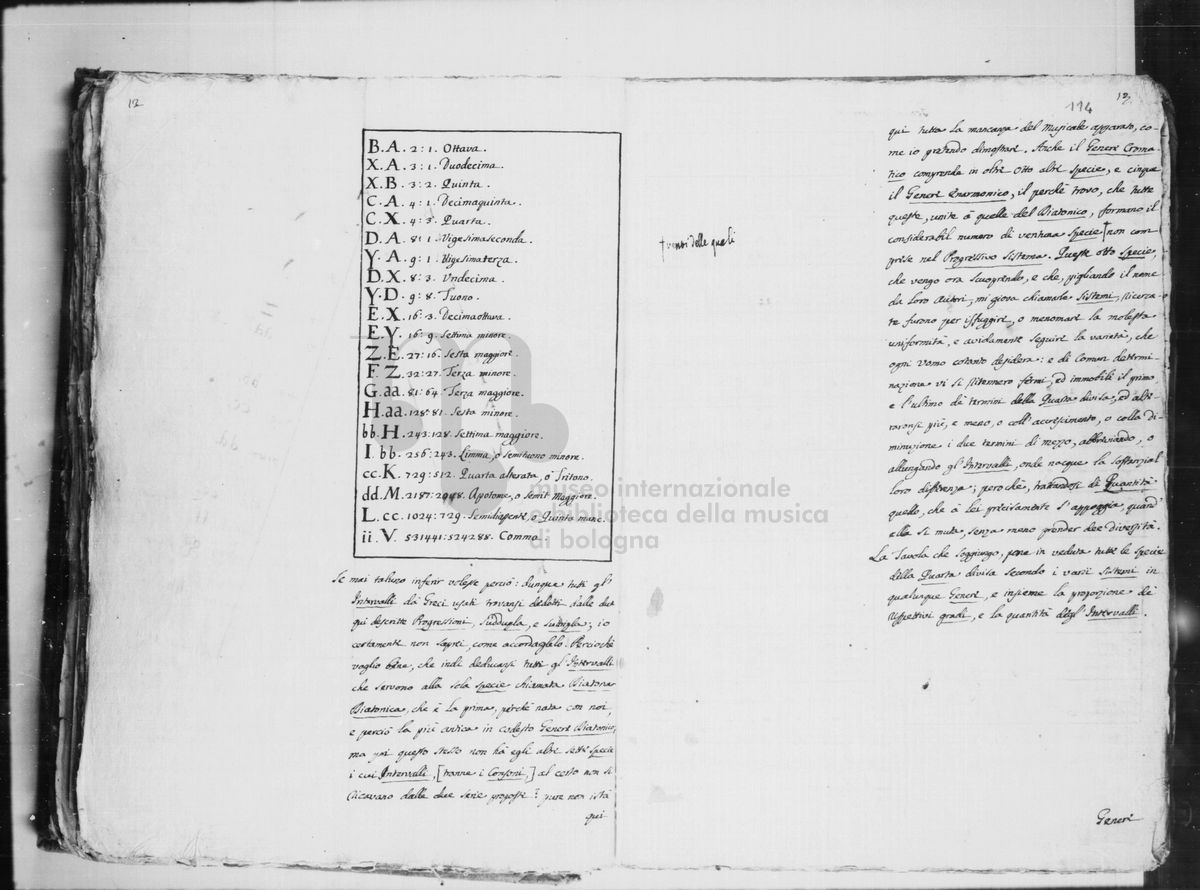 12
B.A. 2:1. Ottava.
X.A. 3:1. Duodecima.
X.B. 3:2. Quinta.
C.A. 4:1. Decimaquinta.
C.X. 4:3. Quarta.
D.A. 8:1. Vigesimaseconda.
Y.A. 9:1. Vigesimaterza.
D.X. 8:3. Undecima.
Y.D. 9:8. Tuono.
E.X. 16:3. Decimaottava.
E.Y. 16:9. Settima minore.
Z.E. 27:16. Sesta maggiore.
F.Z. 32:27. Terza minore.
G.aa. 81:64. Terza maggiore.
H.aa. 128:81. Sesta minore.
bb.H. 243:128. Settima maggiore.
I.bb. 256:243. Limma, o semituono minore.
cc.K. 729:512. Quarta alterata, o Tritono.
dd.M. 2187:2048. Apotome, o Semit. Maggiore.
L.cc. 1024:729. Semidiapente, o Quinta manc.
ii.V. 531441:524288. Comma.
Se mai taluno inferir volesse perciò: dunque tutti gl'
Intervalli da Greci usati trovansi dedotti dalle due
qui descritte Progressioni, Suddupla, e Subtripla; io
certamente non saprei, come accordarglelo. Perciochè
voglio bene, che indi deducansi tutti gl'Intervalli
che servono alla sola specie chiamata Diatona
Diatonica, che è la prima, perchè nata con noi,
e perciò la più antica in codesto Genere Diatonico;
ma poi questo stesso non hà egli altre sette Specie
i cui Intervalli, [tranne i Consoni,] al certo non si
ricavano dalle due serie proposte? pure non istà
qui
13
114
†venti delle quali
qui tutta la mancanza del Musicale apparato, co-
me io pretendo dimostrare. Anche il Genere Croma
tico comprende in oltre otto altre specie, e cinque
il Genere Enarmonico, il perchè trovo, che tutte
queste, unite à quelle del Diatonico, formano il
considerabil numero di ventuna Specie †non com
prese nel Progressivo Sistema. Queste otto Specie,
che vengo ora scuoprendo, e che, pigliando il nome
da loro Autori, mi giova chiamarle Sistemi, ricerca-
te furono per isfuggire, o menomare la molesta
uniformità, e avidamente seguire la varietà, che
ogni Uomo cotanto desidera: e di comun determi
nazione vi si ritennero fermi, ed immobili il primo,
e l'ultimo de termini della Quarta divisa, ed alte-
raronsi più, e meno, o coll'accrescimento, o colla di-
minuzione i due termini di mezzo, abbreviando, o
allungando gl'Intervalli, onde nacque la sostanzial
loro differenza; perochè, trattandosi di Quantità
quello, che à lei precisamente s'appoggia, quand'
ella si muta, senza meno prender dee diversità.
La Tavola che soggiungo, pone in veduta tutte le Specie
della Quarta divisa secondo i varii Sistemi in
qualunque Genere, e insieme la proporzione de
rispettivi gradi, e la quantità degl'Intervalli.
Generi
museo internazionale
e biblioteca della musica
di bologna